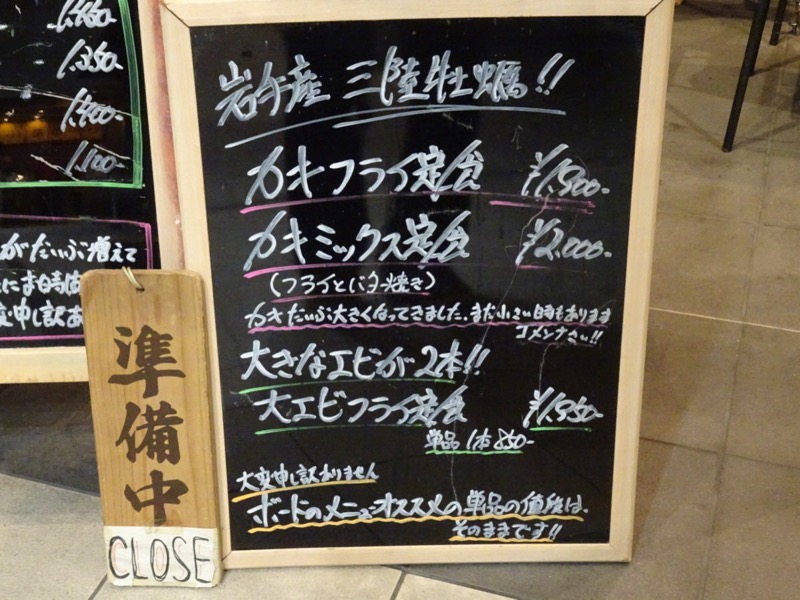 1,350-
1,400-
1,100-
がだいぶ増えて
岩手産 三陸牡蠣!!
カキフライ定食 ¥1,500-
カキミックス定食 ¥2,000-
(フライとバター焼き)
カキだいぶ大きくなってきました。まだ小さい日時もあります
ゴメンナさい!!
大きなエビが2本!!
大エビフライ定食 ¥1,550-
単品 1本 850-
大変申し訳ありません
ボードのメニューオススメの単品の値段は、
そのままです!!
準備中
CLOSE